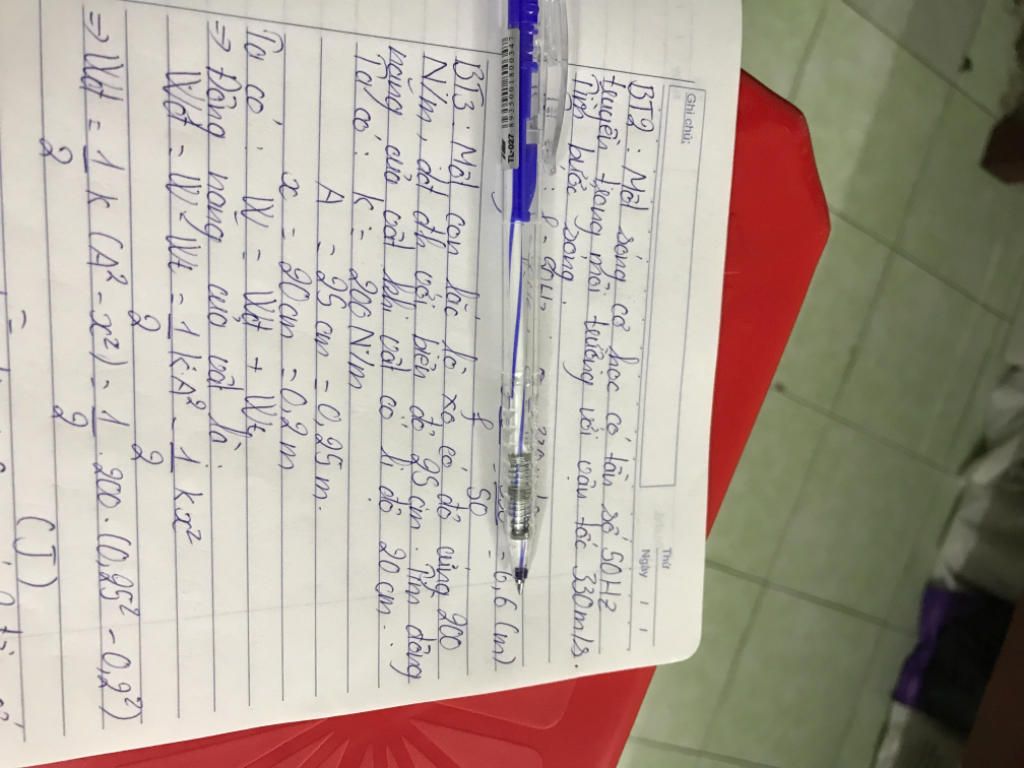 Ghi chú:
Thứ
Ngày
BT2: Một sóng cơ học có tần số 50Hz
truyền trong môi trường với vận tốc 330m/s.
Tìm bước sóng.
f 50
= 6,6 (m)
BT3: Một con lắc lò xo có độ cứng 200
N/m, dđ đh với biên độ 25 cm. Tìm động
năng của vật khi vật có li độ 20 cm.
Ta có: k = 200N/m
A = 25 cm = 0,25 m.
x = 20cm = 0,2m
Ta có: W = Wđ + Wt
⇒ Động năng của vật là:
Wđ = W - Wt = 1/2 kA² - 1/2 kx²
⇒ Wđ = 1/2 k (A² - x²) = 1/2 . 200 . (0,25² - 0,2²)
= (J)
TL-027
8935001820347